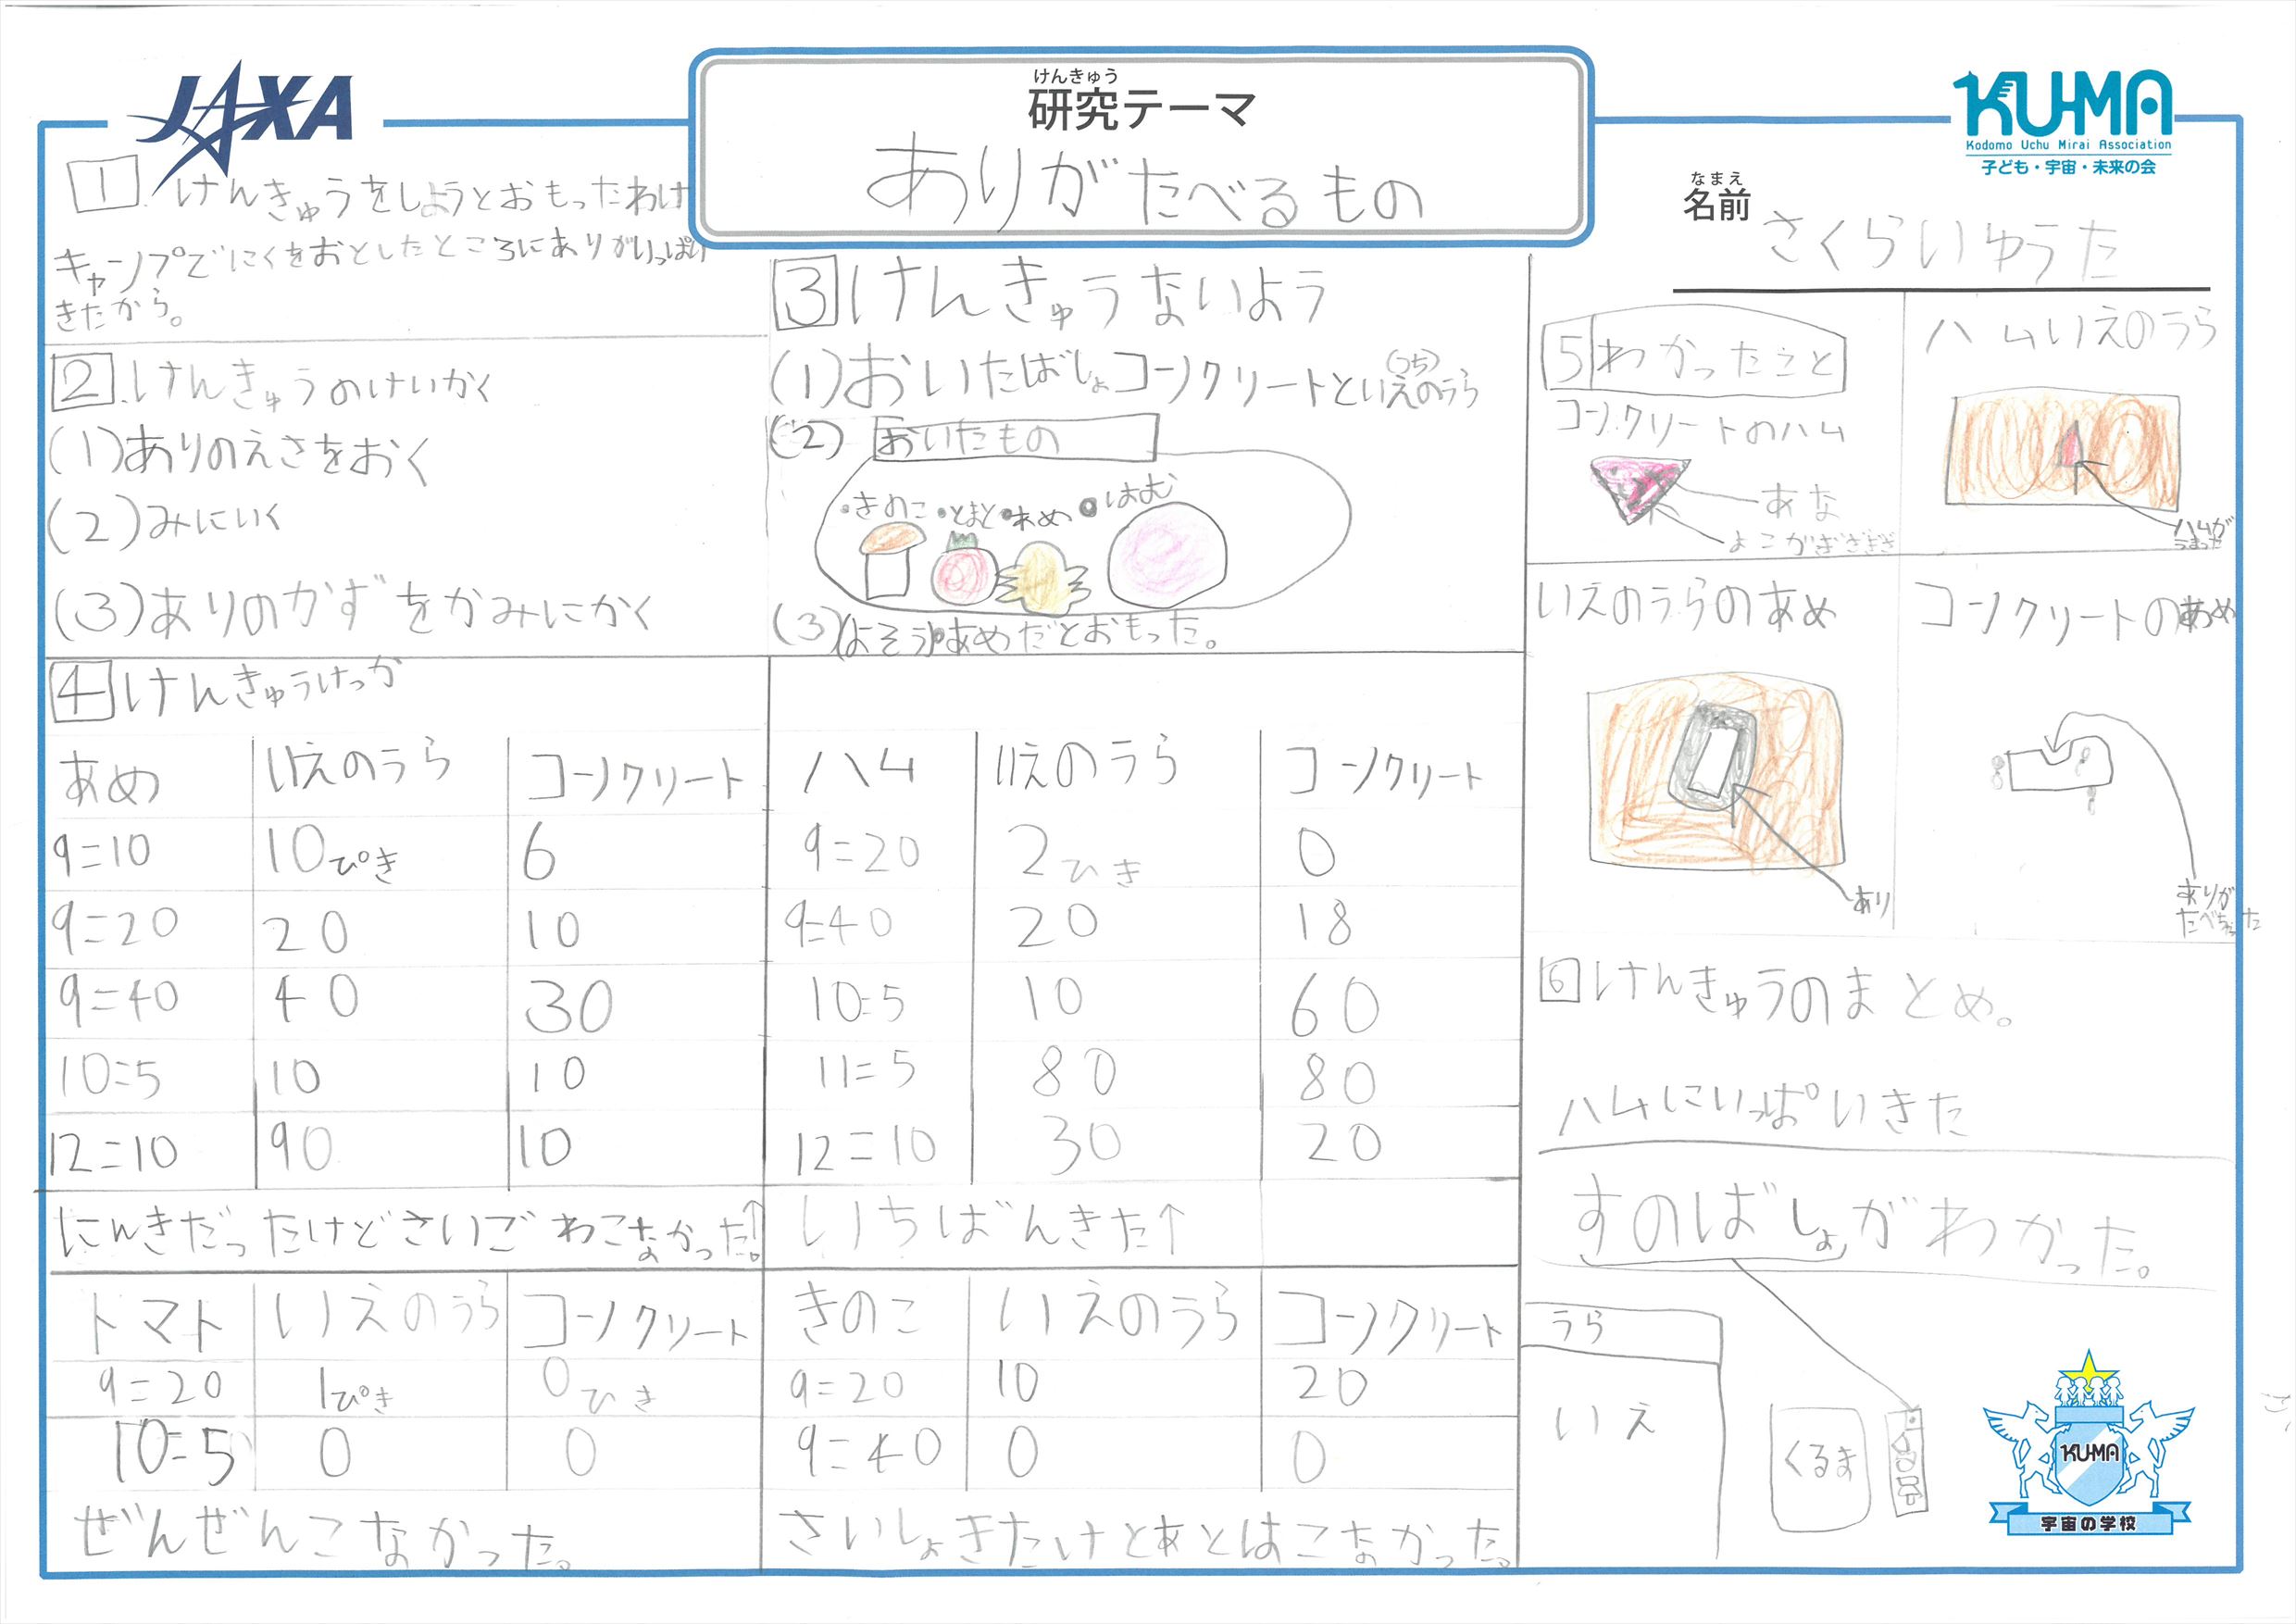 JAXA
けんきゅう
研究テーマ
ありがたべるもの
KU-MA
Kodomo Uchu Mirai Association
子ども・宇宙・未来の会
なまえ
名前
さくらいゆうた
1 けんきゅうをしようとおもったわけ
キャンプでにくをおとしたところにありがいっぱい
きたから。
2 けんきゅうのけいかく
(1)ありのえさをおく
(2)みにいく
(3)ありのかずをかみにかく
3 けんきゅうないよう
(1)おいたばしょコンクリートといえ(うち)のうら
(2) おいたもの
・きのこ・とまと・あめ・はむ
(3)(よそう)あめだとおもった。
4 けんきゅうけっか
あめ いえのうら コンクリート
9=10 10ぴき 6
9=20 20 10
9=40 40 30
10=5 10 10
12=10 90 10
にんきだったけどさいごわこなかった。↑
ハム いえのうら コンクリート
9=20 2ひき 0
9=40 20 18
10=5 10 60
11=5 80 80
12=10 30 20
いちばんきた↑
トマト いえのうら コンクリート
9=20 1ぴき 0ひき
10=5 0 0
ぜんぜんこなかった。
きのこ いえのうら コンクリート
9=20 10 20
9=40 0 0
さいしょきたけどあとはこなかった。
5 わかったこと
コンクリートのハム
あな
よこがぎざぎざ
ハムいえのうら
ハムが
うまった
いえのうらのあめ
あり
コンクリートのあめ
ありが
たべちゃった
6 けんきゅうのまとめ。
ハムにいっぱいきた
すのばしょがわかった。
うら
いえ
くるま
KU-MA
宇宙の学校